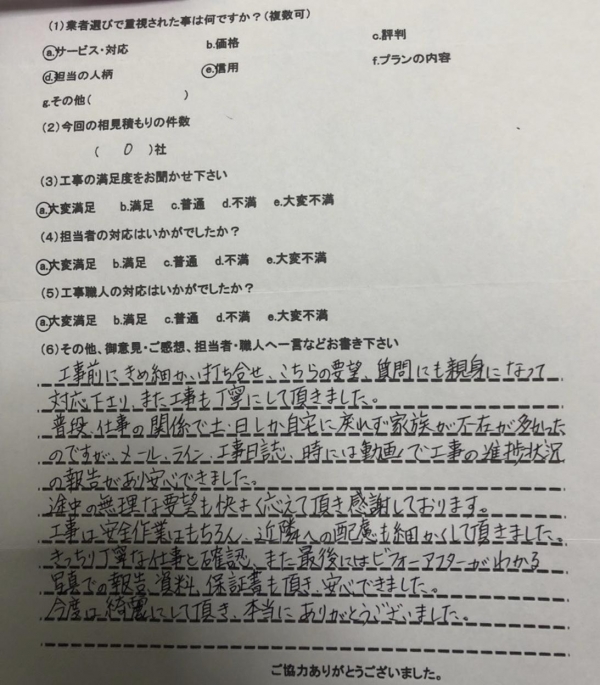 (1)業者選びで重視された事は何ですか？(複数可)
a.サービス・対応 b.価格 c.評判
d.担当の人柄 e.信用 f.プランの内容
g.その他( )
(2)今回の相見積もりの件数
( 0 )社
(3)工事の満足度をお聞かせ下さい
a.大変満足 b.満足 c.普通 d.不満 e.大変不満
(4)担当者の対応はいかがでしたか？
a.大変満足 b.満足 c.普通 d.不満 e.大変不満
(5)工事職人の対応はいかがでしたか？
a.大変満足 b.満足 c.普通 d.不満 e.大変不満
(6)その他、御意見・ご感想、担当者・職人へ一言などお書き下さい
工事前にきめ細かい打ち合せ、こちらの要望、質問にも親身になって
対応下さり、また工事も丁寧にして頂きました。
普段、仕事の関係で土・日しか自宅に戻れず家族が不在が多かった
のですが、メール、ライン、工事日誌、時には動画で工事の進捗状況
の報告があり安心できました。
途中の無理な要望も快よく応えて頂き感謝しております。
工事は安全作業はもちろん、近隣への配慮も細かくして頂きました。
きっちり丁寧な仕事と確認、また最後にはビフォーアフターがわかる
写真での報告、資料、保証書も頂き、安心できました。
今度は、綺麗にして頂き、本当にありがとうございました。
ご協力ありがとうございました。